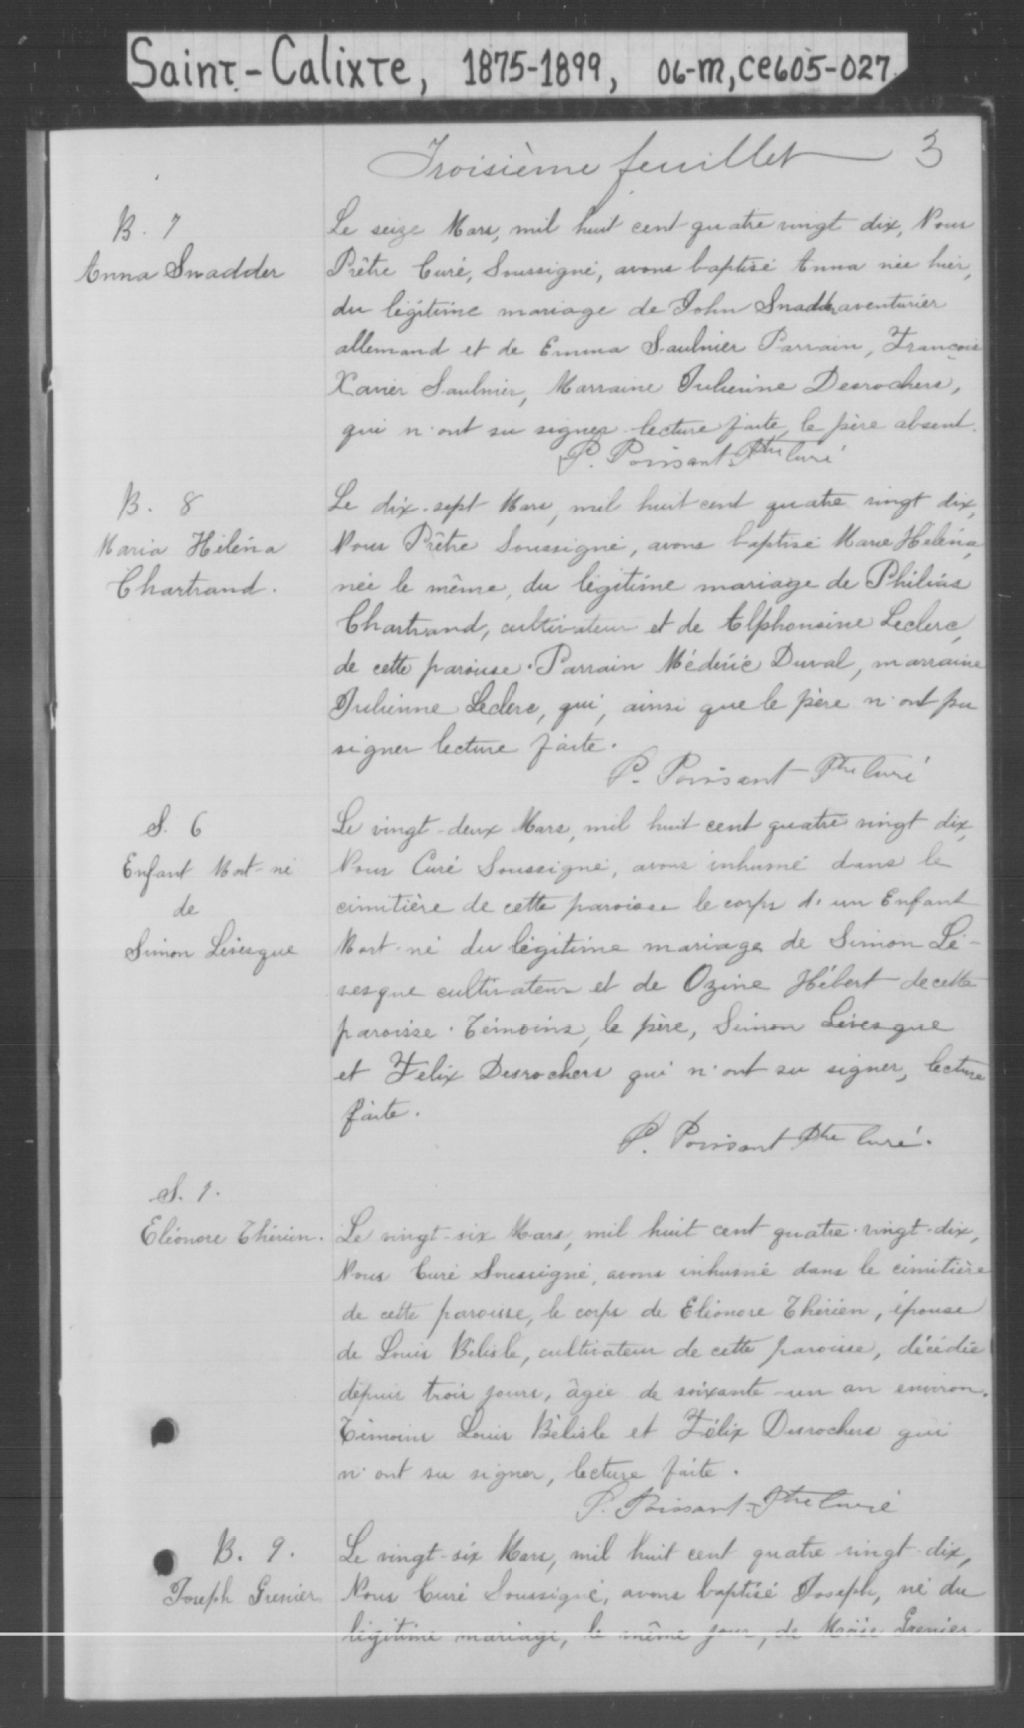 Saint-Calixte, 1875-1899, 06-M, CE605-027.
Troisième feuillet 3
B. 7
Anna Snadder
Le seize Mars, mil huit cent quatre vingt dix, Nous
Prêtre Curé, Soussigné, avons baptisé Anna née hier,
du légitime mariage de John Snadder aventurier
allemand et de Emma Saulnier Parrain, François
Xavier Saulnier, Marraine Julienne Desrochers,
qui n'ont su signer lecture faite, le père absent.
P. Poissant Ptre Curé
B. 8
Maria Héléna
Chartrand.
Le dix-sept Mars, mil huit cent quatre vingt dix,
Nous Prêtre Soussigné, avons baptisé Marie Héléna,
née le même, du légitime mariage de Philias
Chartrand, cultivateur et de Alphonsine Leclerc,
de cette paroisse. Parrain Médéric Duval, marraine
Julienne Leclerc, qui, ainsi que le père n'ont pu
signer lecture faite.
P. Poissant Ptre Curé
S. 6
Enfant Mort-né
de
Simon Lévesque
Le vingt-deux Mars, mil huit cent quatre vingt dix,
Nous Curé Soussigné, avons inhumé dans le
cimitière de cette paroisse le corps d'un Enfant
Mort-né du légitime mariage de Simon Lé-
vesque cultivateur et de Ozine Hébert de cette
paroisse. Témoins, le père, Simon Lévesque
et Félix Desrochers qui n'ont su signer, lecture
faite.
P. Poissant Ptre Curé.
S. 7.
Eléonore Thérien.
Le vingt-six Mars, mil huit cent quatre-vingt-dix,
Nous Curé Soussigné, avons inhumé dans le cimitière
de cette paroisse, le corps de Eléonore Thérien, épouse
de Louis Bélisle, cultivateur de cette paroisse, décédée
depuis trois jours, âgée de soixante-un an environ.
Témoins Louis Bélisle et Félix Desrochers qui
n'ont su signer, lecture faite.
P. Poissant Ptre Curé
B. 9.
Joseph Grenier
Le vingt-six Mars, mil huit cent quatre-vingt-dix,
Nous Curé Soussigné, avons baptisé Joseph, né du
légitime mariage, le même jour, de Moïse Grenier